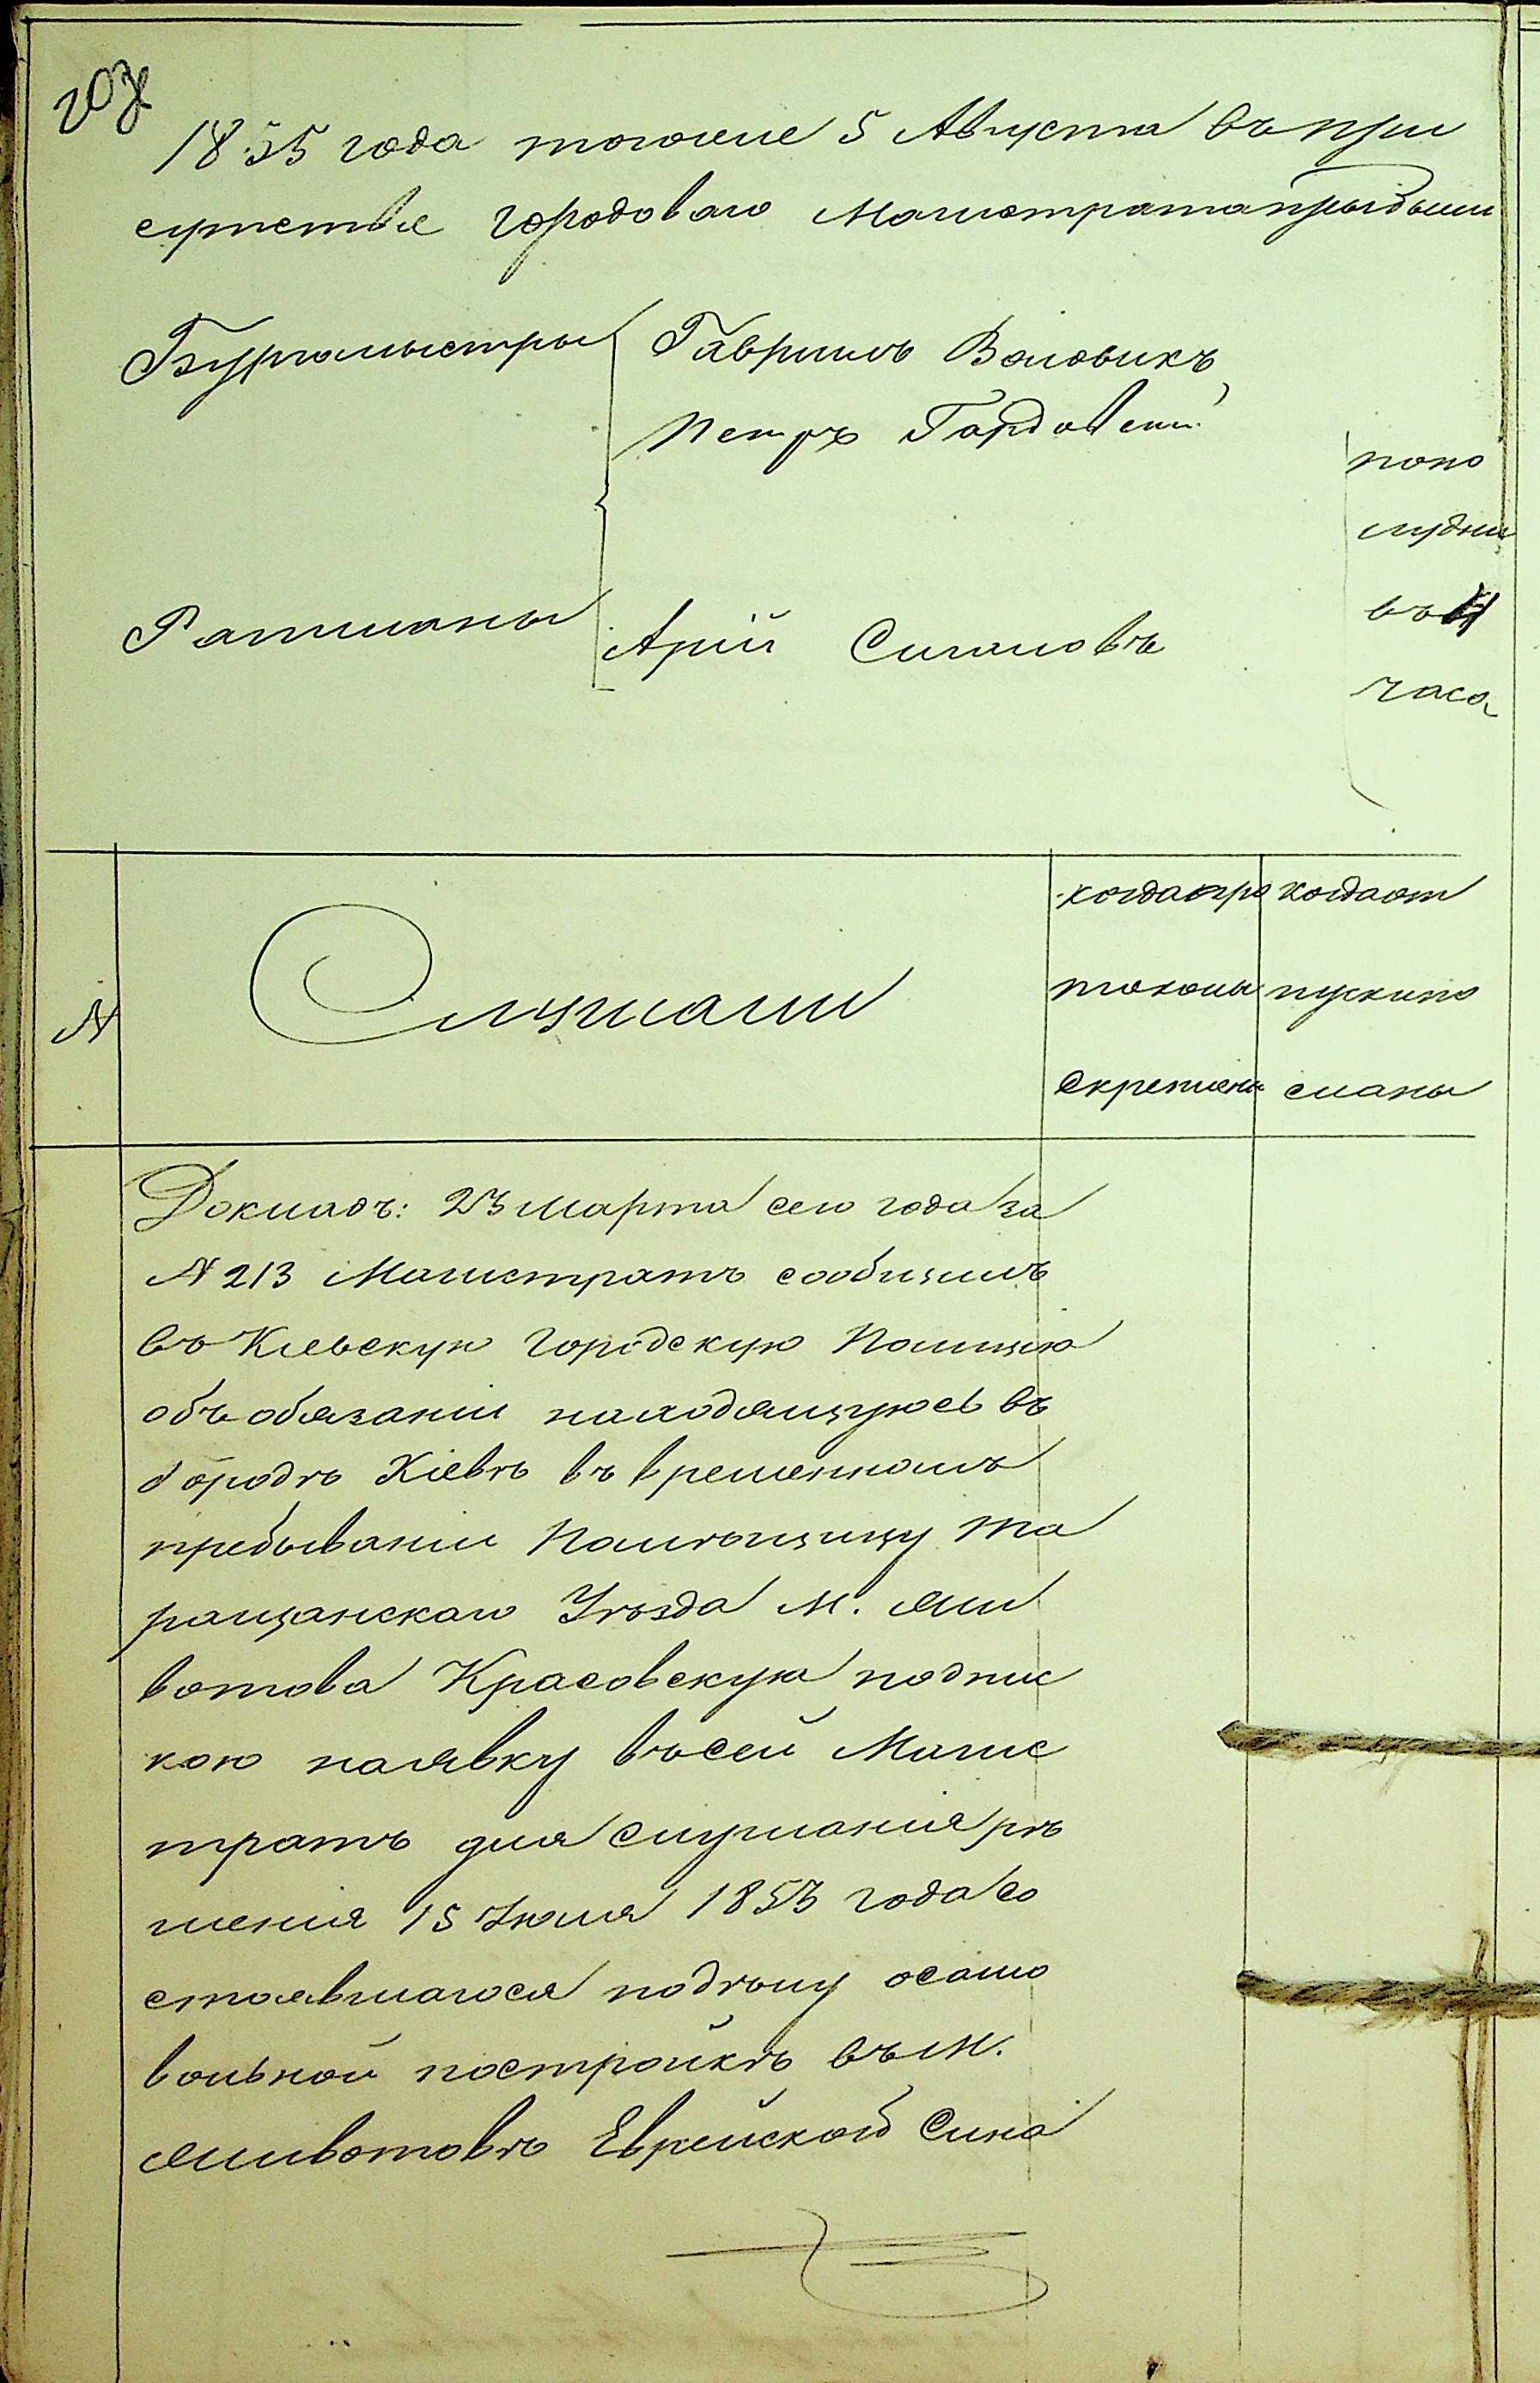 1855 года того же 5 Августа въ при
сутствіе городоваго Магистрата прыбыли
Бургомыстры Гаврыилъ Воловикъ
Петръ Гордовскій
попо
лудни
въ
часа
Ратманы Арій Сигаловъ
N
Слушали
когда про
токолы
скреплены
когда от
пуски по
сланы
Докладъ: 23 Марта сего года за
N 213 Магистратъ сообщилъ
въ Киевскую городскую Полицію
объ обязаніи находящуюсь въ
городѣ Кіевѣ въ временномъ
пребываніи Помѣщицу Та
ращанскаго Уѣзда м. Жи
вотова Красовскую подпис
кою на явку въ сей Магис
тратъ для слушанія рѣ
шенія 15 Июля 1853 года со
стоявшагося по дѣлу о само
вольной постройкѣ въ м.
Животовѣ Еврейской Сина